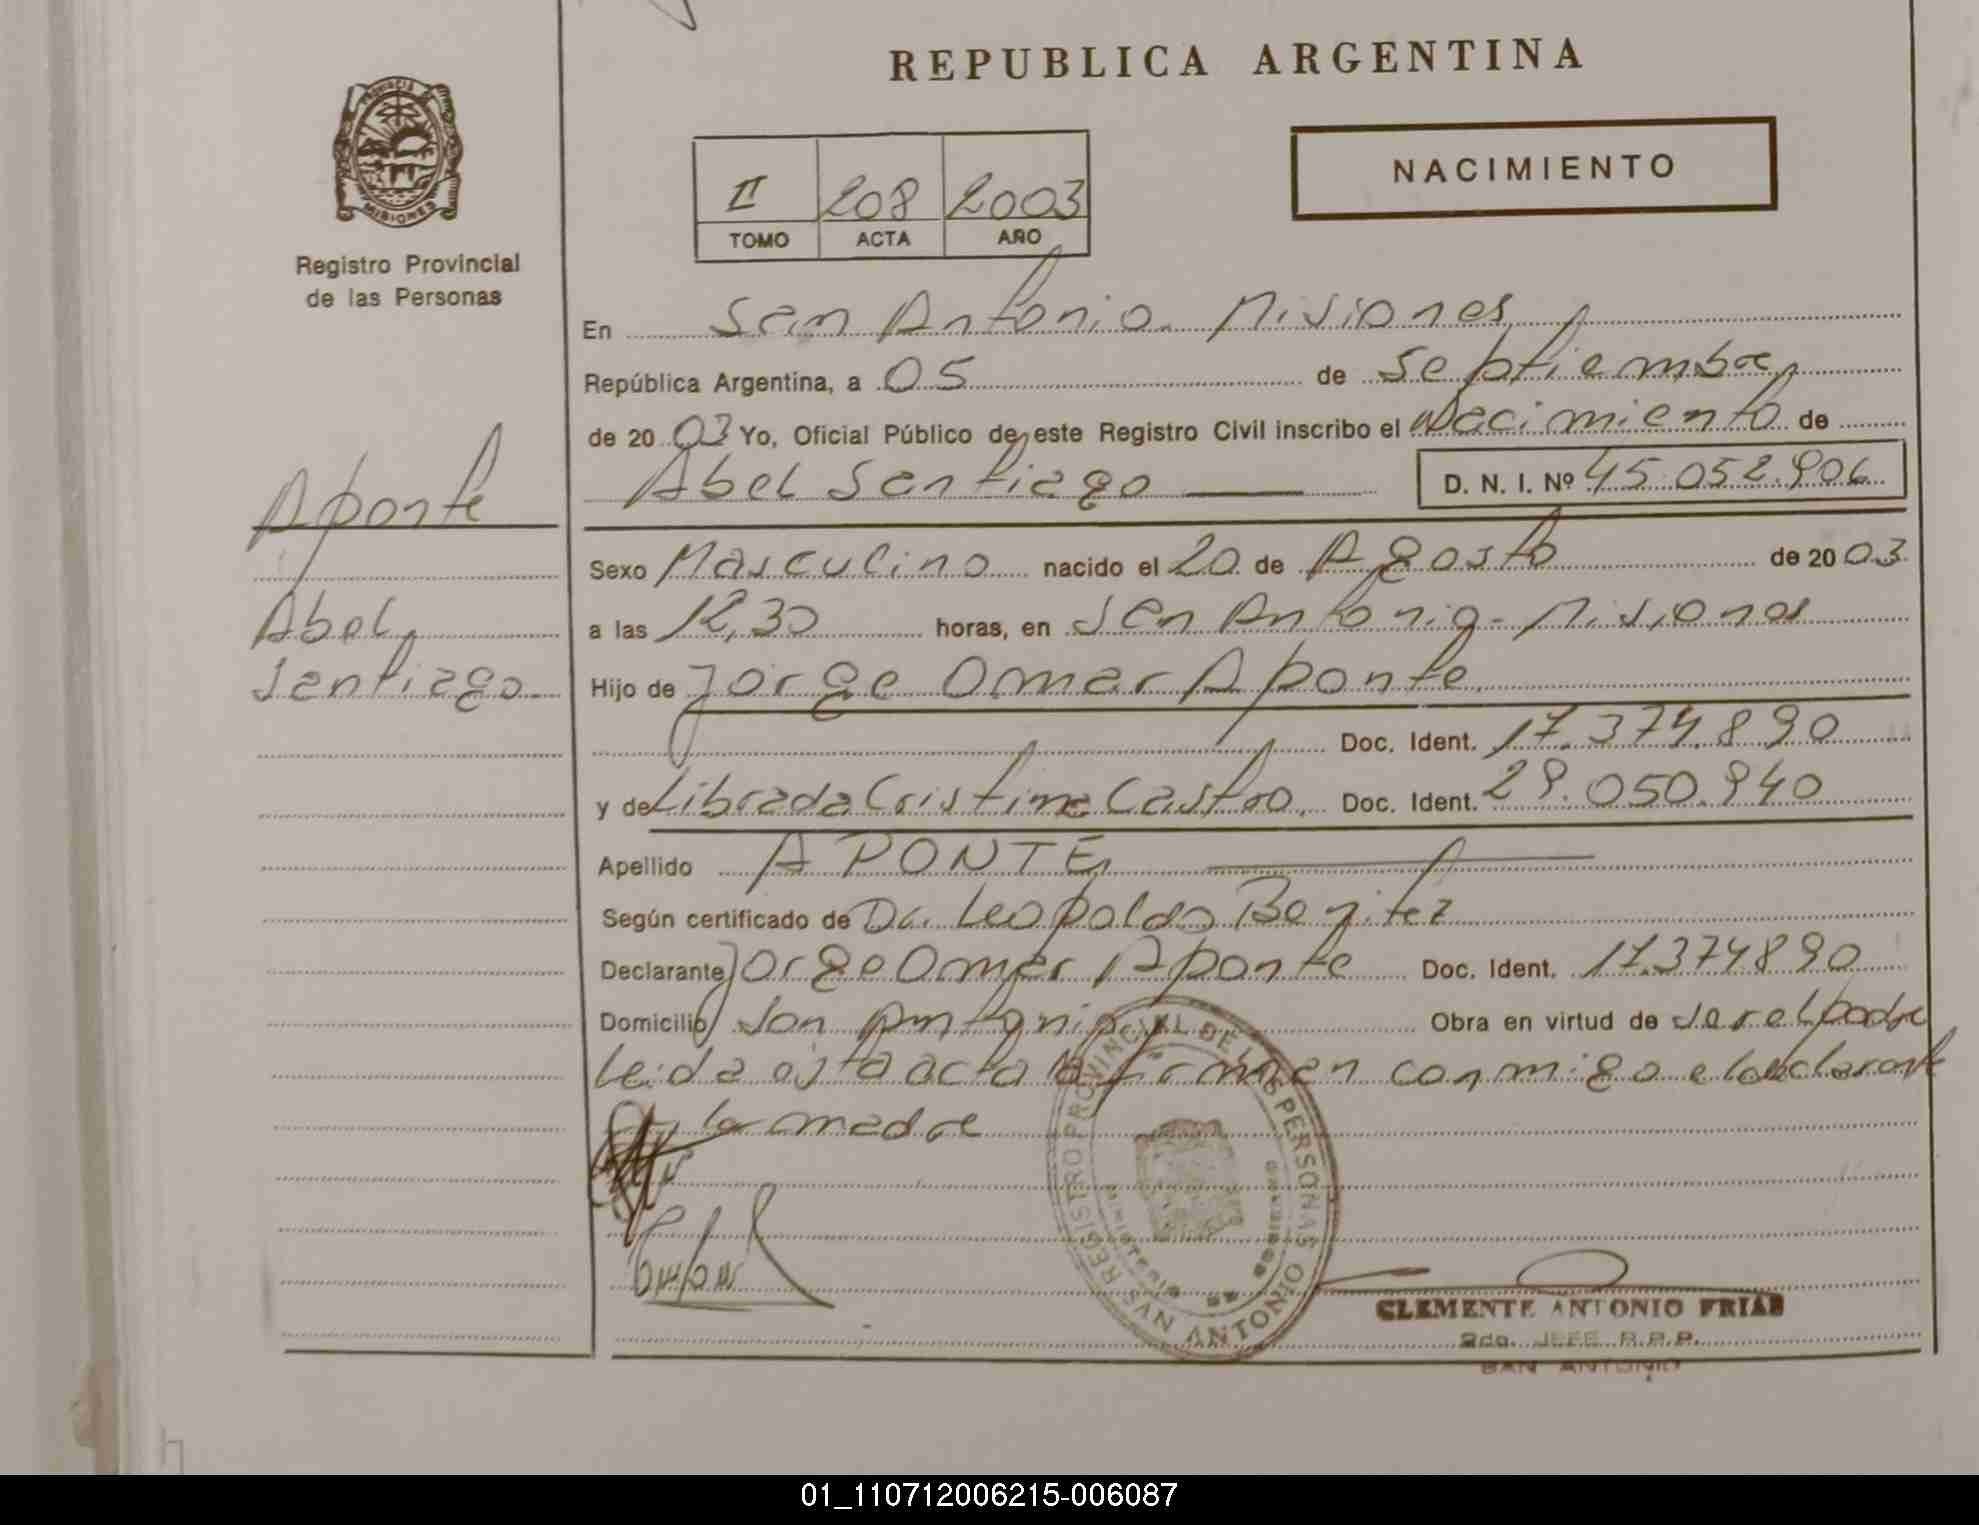 REPUBLICA ARGENTINA
PROVINCIA DE
MISIONES
Registro Provincial
de las Personas
II 208 2003
TOMO ACTA AÑO
NACIMIENTO
En San Antonio. Misiones
República Argentina, a 05 de Septiembre
de 2003 Yo, Oficial Público de este Registro Civil inscribo el Nacimiento de
Abel Santiago D. N. I. Nº 45.052.906
Aponte
Abel
Santiago
Sexo Masculino nacido el 20 de Agosto de 2003
a las 12,30 horas, en San Antonio - Misiones
Hijo de Jorge Omar Aponte
Doc. Ident. 17.374.890
y de Librada Cristina Castro Doc. Ident. 29.050.940
Apellido APONTE
Según certificado de Dr. Leopoldo Benitez
Declarante Jorge Omar Aponte Doc. Ident. 17.374890
Domicilio San Antonio Obra en virtud de ser el padre
Leida esta acta la firman conmigo el declarante
y la madre
REGISTRO PROVINCIAL DE LAS PERSONAS
SAN ANTONIO
CLEMENTE ANTONIO FRIAS
2do. JEFE R.P.P.
SAN ANTONIO
01_110712006215-006087